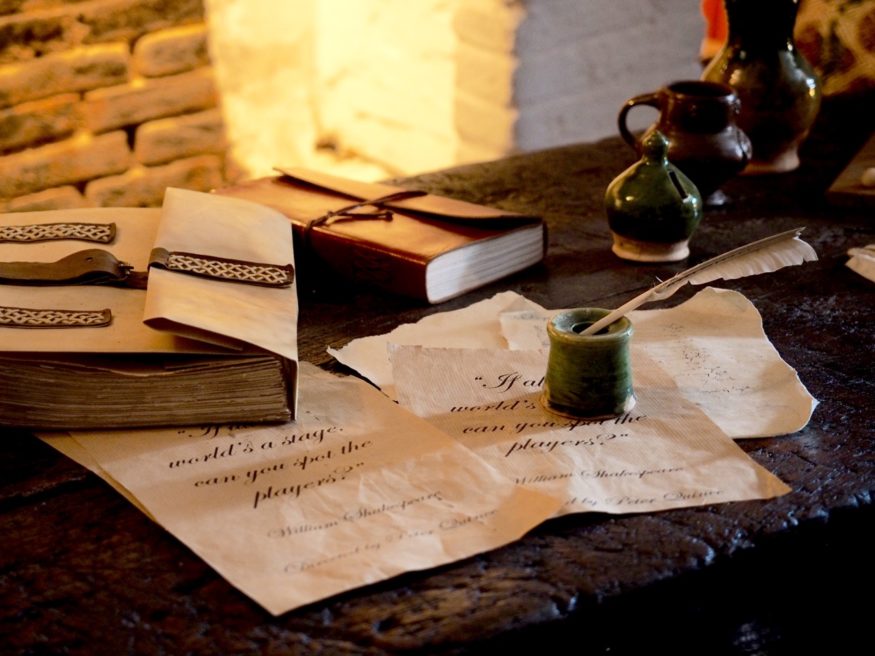 "If
world's a stage.
can you spot the
players?"
William Shakespeare
Directed by Peter Quince
"If al
world's
can you spot the
players?"
William Shakespeare
ed by Peter Quince